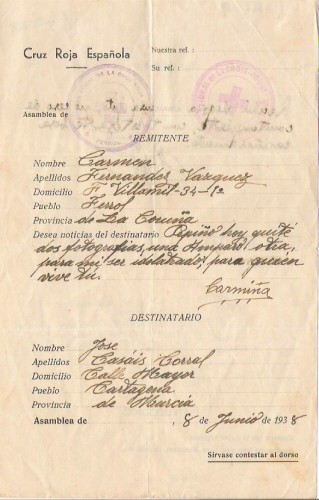 Cruz Roja Española
Nuestra ref.:
Su ref.:
Asamblea de
REMITENTE
Nombre Carmen
Apellidos Fernandez Vazquez
Domicilio F. Villamil-34-1º
Pueblo Ferrol
Provincia de La Coruña
Desea noticias del destinatario Pepiño hoy, quité
dos fotografias, una Amparo otra,
para mi ser idolatrado, para quien
vive tú.
Carmiña
DESTINATARIO
Nombre Jose
Apellidos Casáis Corral
Domicilio Calle Mayor
Pueblo Cartagena
Provincia de Murcia
Asamblea de 8 de Junio de 1938
Sírvase contestar al dorso